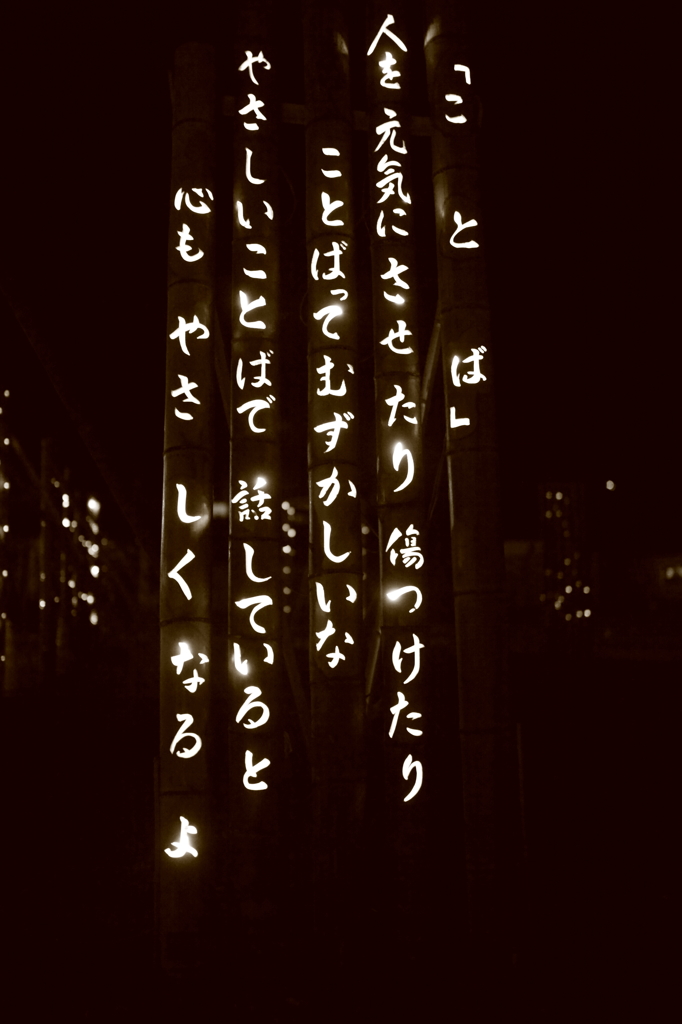 「ことば」
人を元気にさせたり傷つけたり
ことばってむずかしいな
やさしいことばで話していると
心もやさしくなるよ